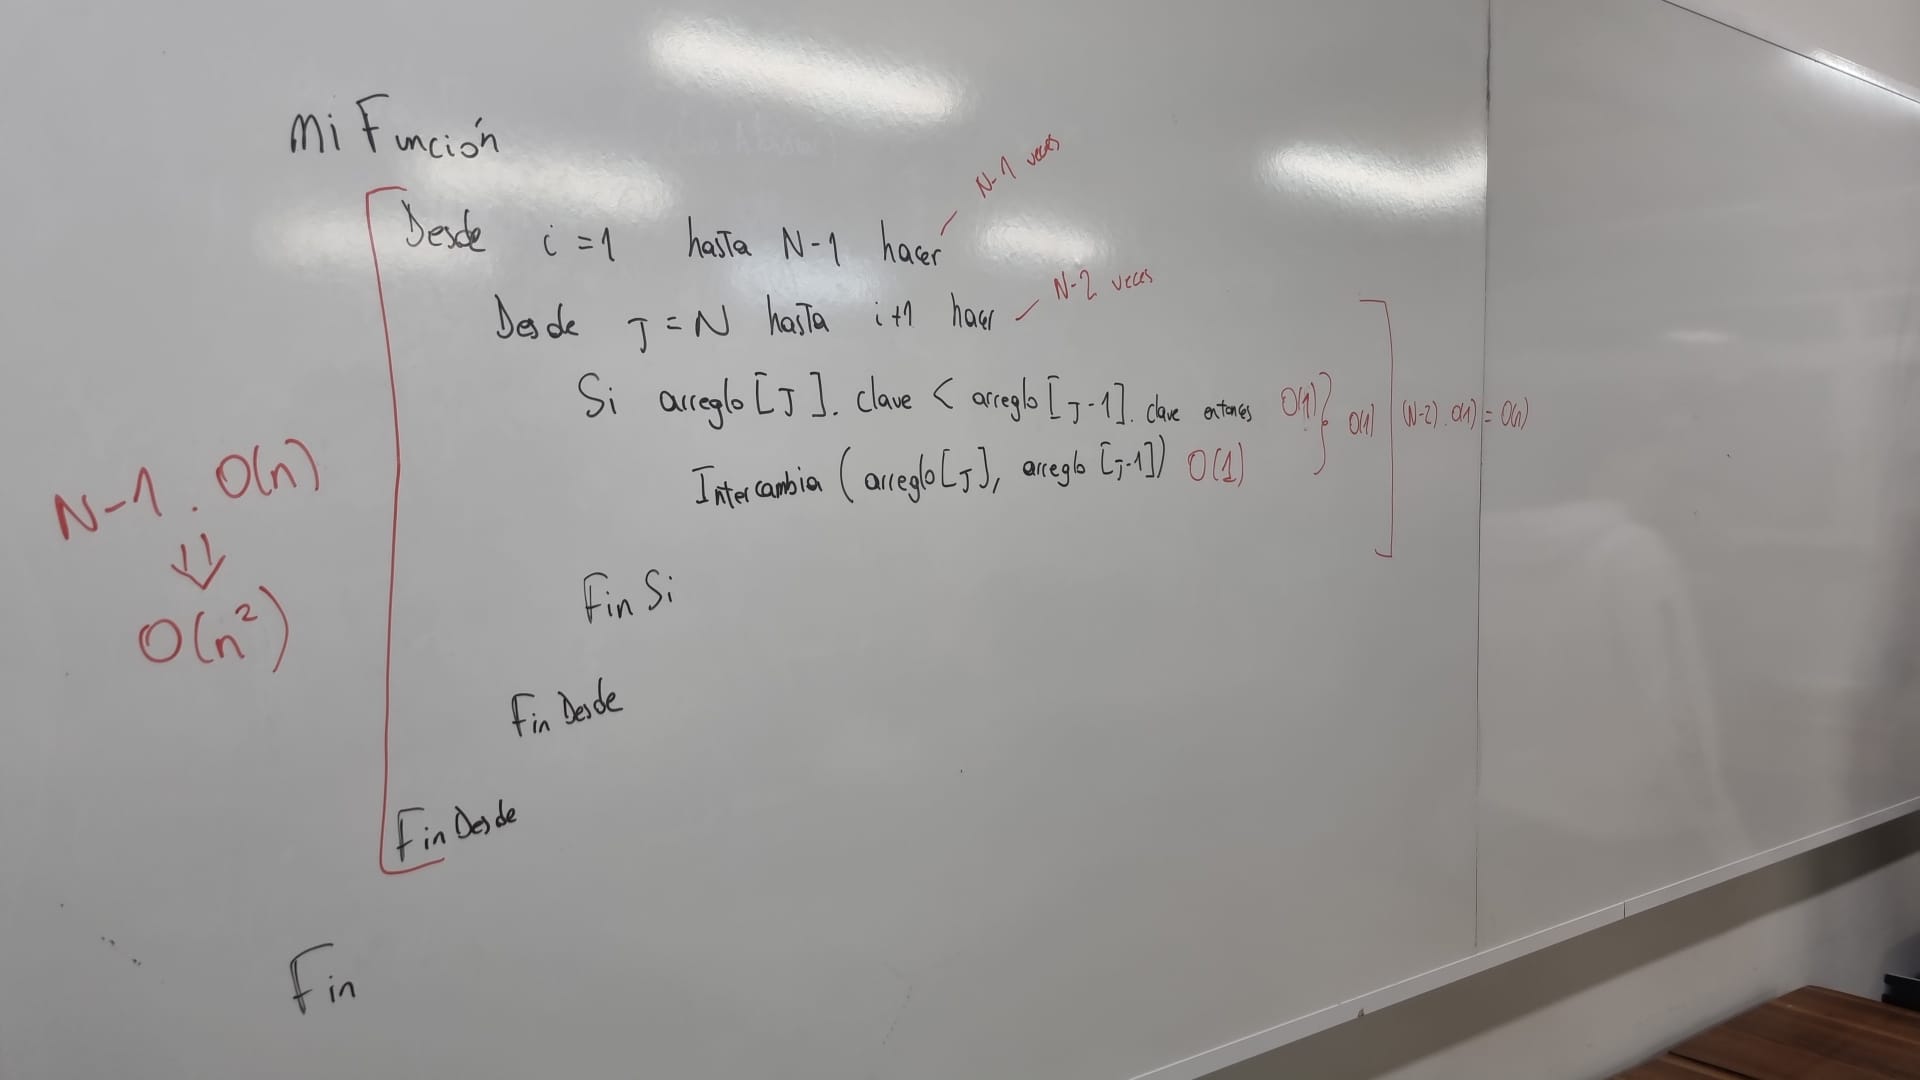 mi Función
Desde i = 1 hasta N-1 hacer
N-1 veces
Desde J = N hasta i+1 hacer
N-2 veces
Si arreglo[J]. clave < arreglo[J-1]. clave entonces O(1)} O(1) (N-2). O(1) = O(n)
Intercambia (arreglo[J], arreglo[J-1]) O(1)
Fin Si
Fin Desde
Fin Desde
Fin
N-1 . O(n)
⇓
O(n²)